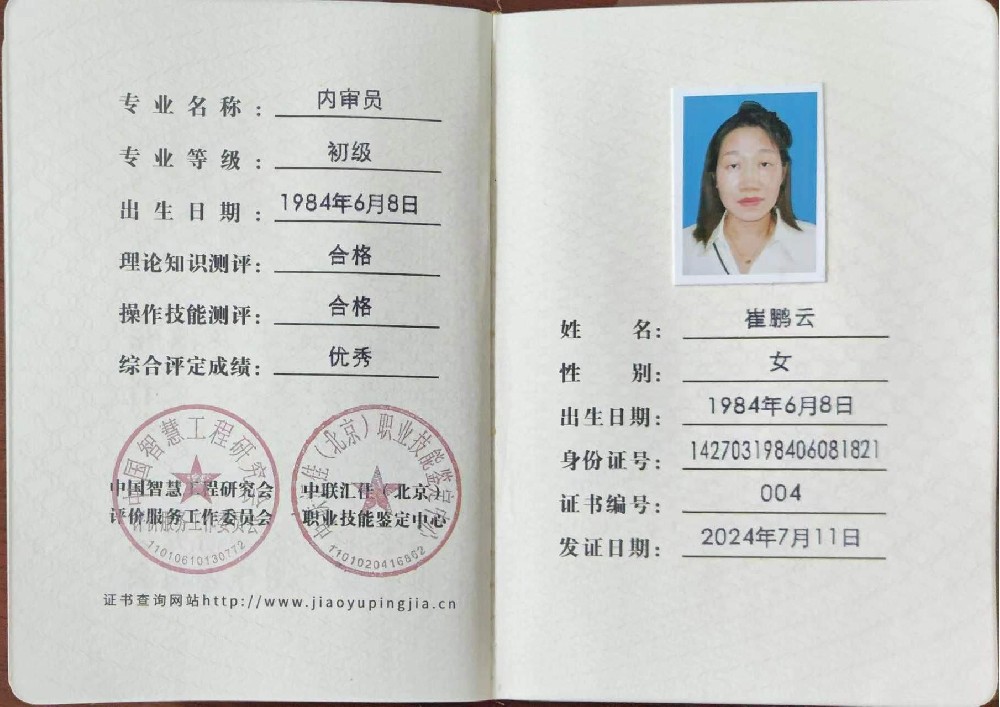 专业名称： 内审员
专业等级： 初级
出生日期： 1984年6月8日
理论知识测评： 合格
操作技能测评： 合格
综合评定成绩： 优秀
中国智慧工程研究会
评价服务工作委员会
1101061013077​2
中联汇佳（北京）
职业技能鉴定中心
1101020416862
证书查询网站http://www.jiaoyupingjia.cn
姓名： 崔鹏云
性别： 女
出生日期： 1984年6月8日
身份证号： 142703198406081821
证书编号： 004
发证日期： 2024年7月11日